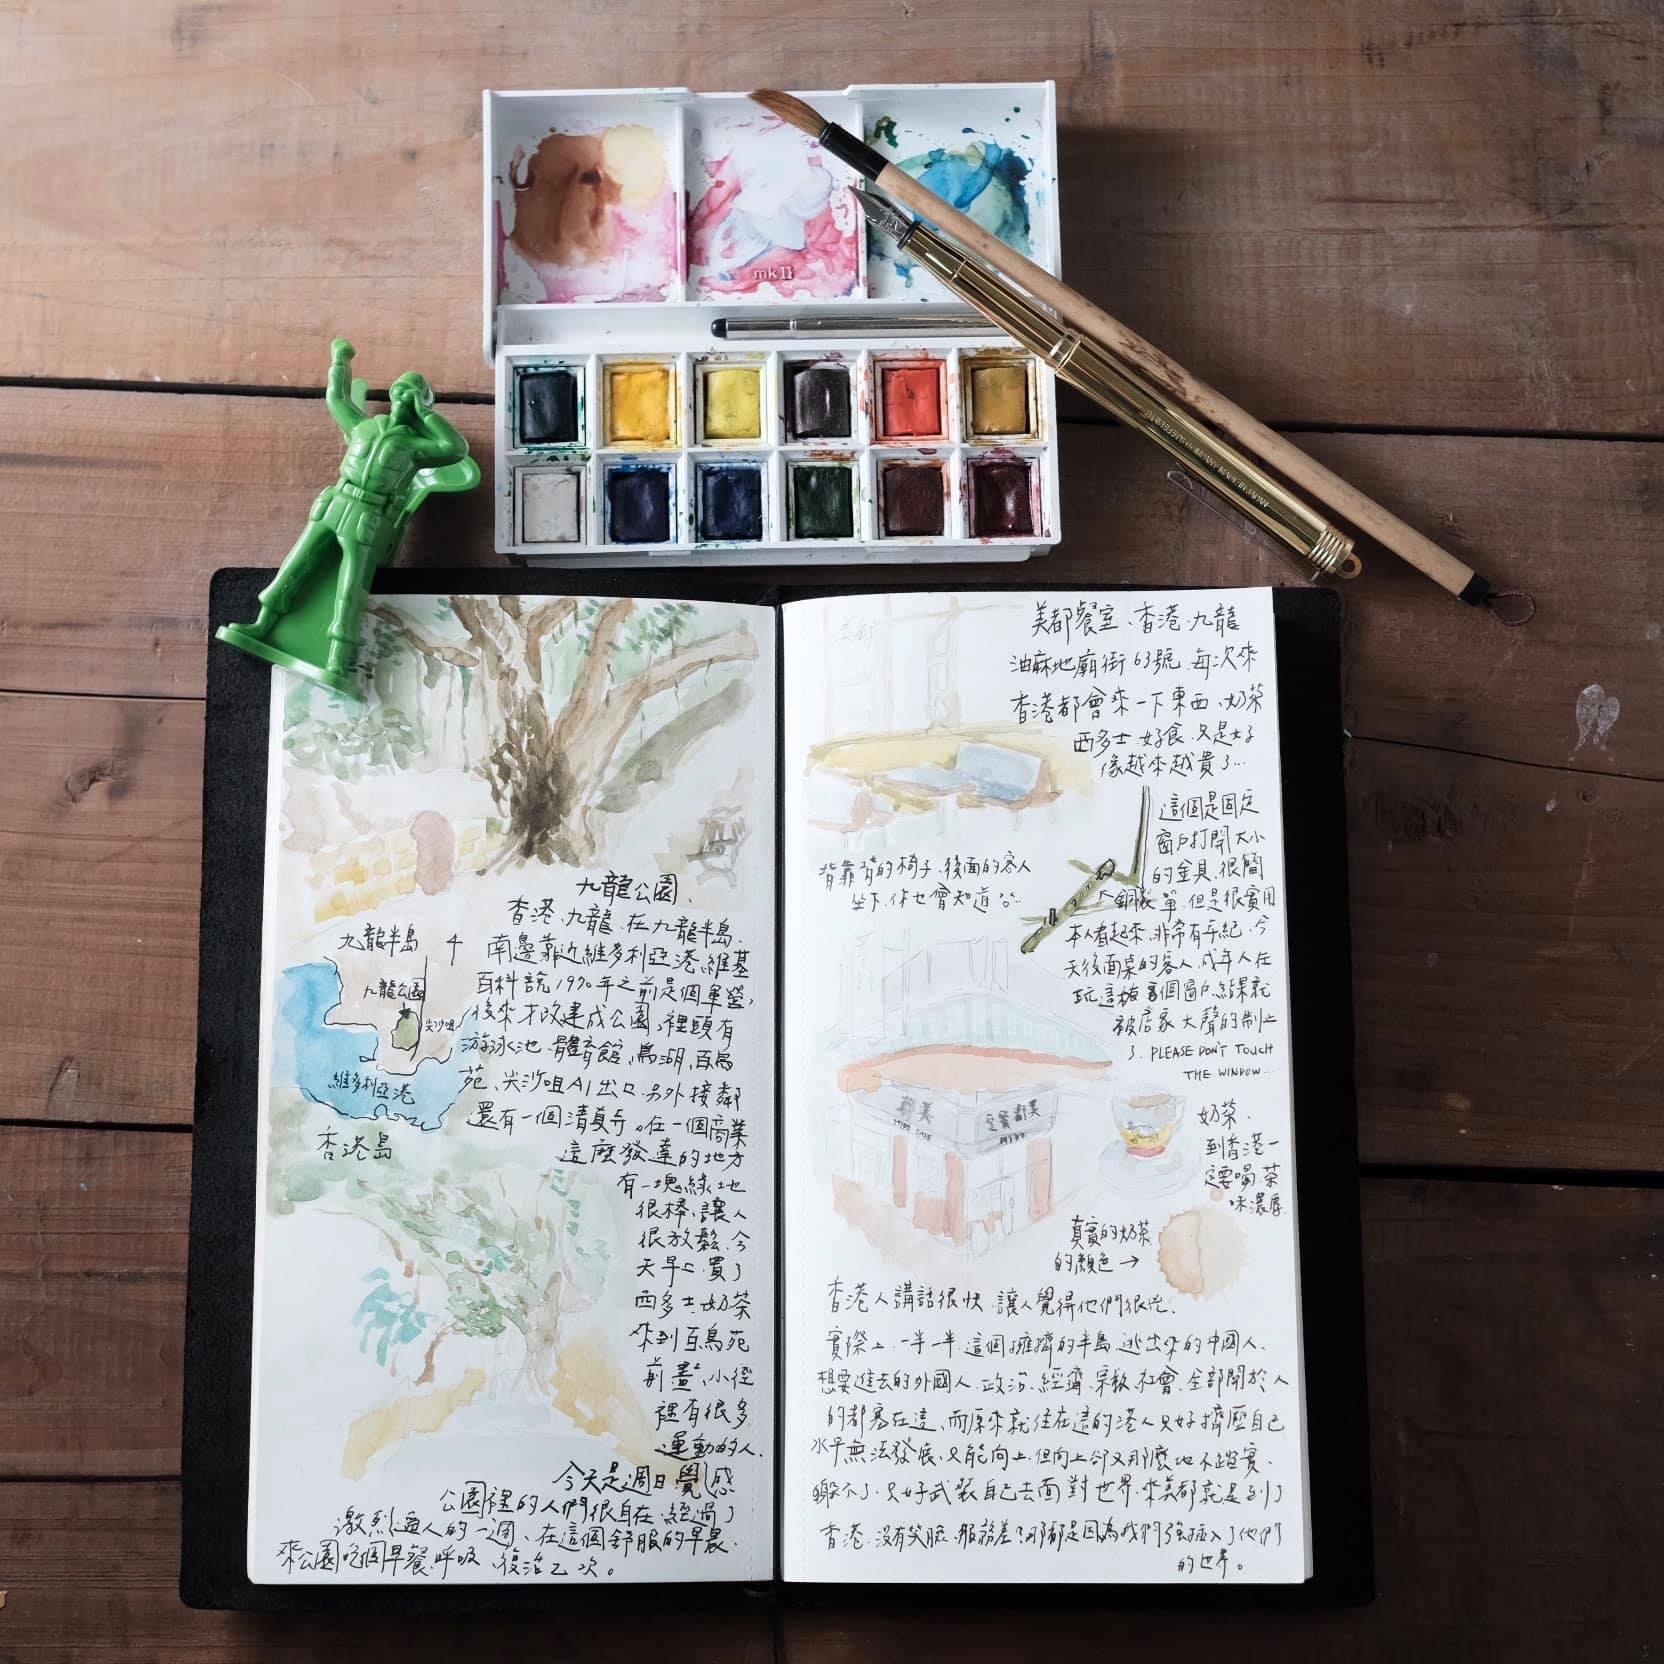 mk II
九龍公園、
香港、九龍、在九龍半島、
南邊靠近維多利亞港、維基
百科說1970年之前是個軍營,
後來才改建成公園,裡頭有
游泳池、體育館、鳥湖、百鳥
苑、尖沙咀A1出口、另外接鄰
還有一個清真寺。在一個商業
這麼發達的地方
有一塊綠地
很棒、讓人
很放鬆、今
天早上買了
西多士、奶茶
來到百鳥苑
前畫、小徑
裡有很多
運動的人.
今天是週日覺感
公園裡的人們很自在、經過了
激烈逼人的一週、在這個舒服的早晨、
來公園吃個早餐、呼吸、復活乙次。
九龍半島
九龍公園
尖沙咀
維多利亞港
香港島
美都
美都餐室、香港、九龍
油麻地廟街63號、每次來
香港都會來一下東西、奶茶
西多士、好食、只是好
像越來越貴了...
這個是固定
窗戶打開大小
的金具、很簡
單、但是很實用
銅製
本人看起來、非常有年紀、今
天後面桌的客人、成年人在
玩這個窗戶、結果就
被店家大聲的制止
了、PLEASE DON'T TOUCH
THE WINDOW...
背靠背的椅子、後面的客人
坐下、你也會知道
都美
美都餐室
奶茶、
到香港一
定要喝、茶
味濃厚
真實的奶茶
的顏色→
香港人講話很快、讓人覺得他們很忙、
實際上、一半一半、這個擁擠的半島、逃出來的中國人、
想要進去的外國人、政治、經濟、宗教、社會、全部關於人
的都塞在這、而原來就住在這的港人只好擠壓自己
水平無法發展、只能向上、但向上卻又那麼地不踏實、
躲不了、只好武裝自己去面對世界、來美都就是到了
香港、沒有笑臉、服務差?那都是因為我們強插入了他們
的世界。